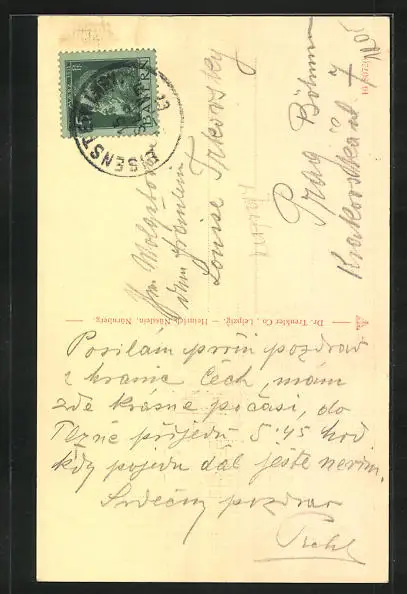 BAYERN
EISENSTEIN
Wolgeboren
Fräulein
Louise Trkovsky
Prag Böhmen
Krakovská ul 7
Dr. Trenkler Co., Leipzig. — Heinrich Nüsslein, Nürnberg.
Posílám první pozdrav
z hranic Čech, mám
zde krásné počasí, do
Plzně přijedu 5:45 hod
kdy pojedu dál ještě nevím.
Srdečný pozdrav